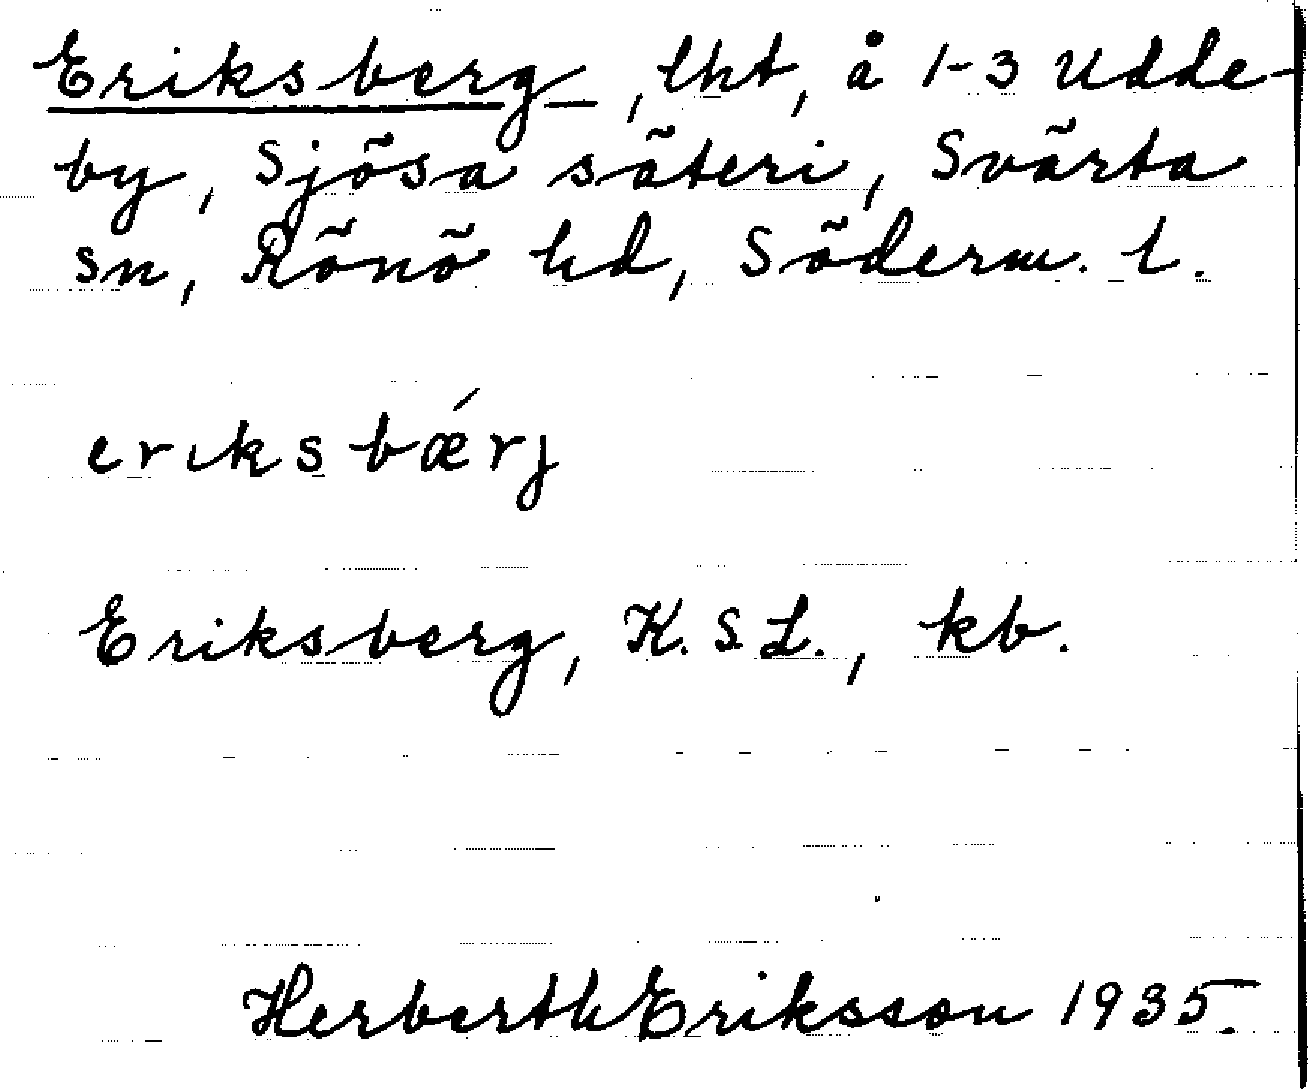 Eriksberg, lht, å 1-3 Udde-
by, Sjösa säteri, Svärta
sn, Rönö hd, Söderm. l.
erıksbǽrj
Eriksberg, K.S.L., kb.
Herberth Eriksson 1935.